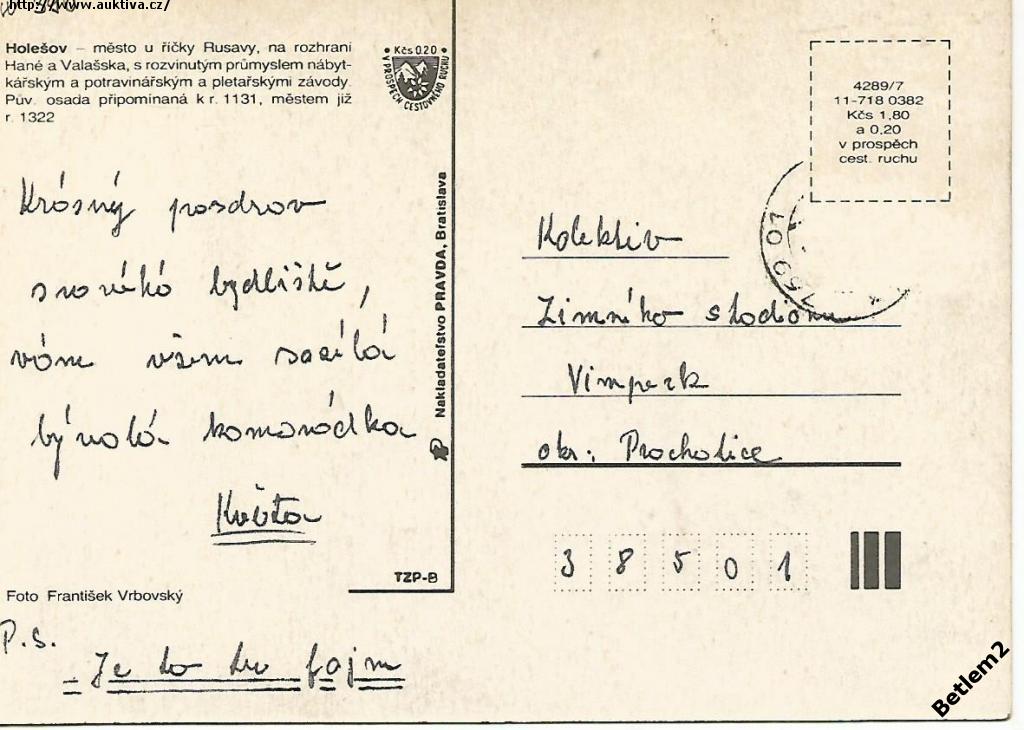 http://www.auktiva.cz/
Holešov – město u říčky Rusavy, na rozhraní
Hané a Valašska, s rozvinutým průmyslem nábyt-
kářským a potravinářským a pletařskými závody.
Pův. osada připomínaná k r. 1131, městem již
r. 1322
• Kčs 0.20 •
V PROSPĚCH CESTOVNÉHO RUCHU
4289/7
11-718 0382
Kčs 1,80
a 0,20
v prospěch
cest. ruchu
Krásný pozdrav
z nového bydliště,
vám všem zasílá
bývalá kamarádka
Květa
Nakladateľstvo PRAVDA, Bratislava
TZP-B
Foto František Vrbovský
P.S.
Je to tu fajn
Kolektiv
Zimního stadionu
Vimperk
okr.: Prachatice
38501
Betlem2